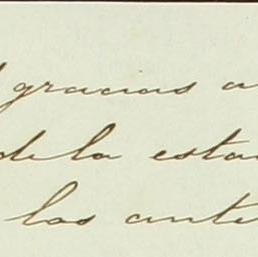 gracias a
de la esta
las ante